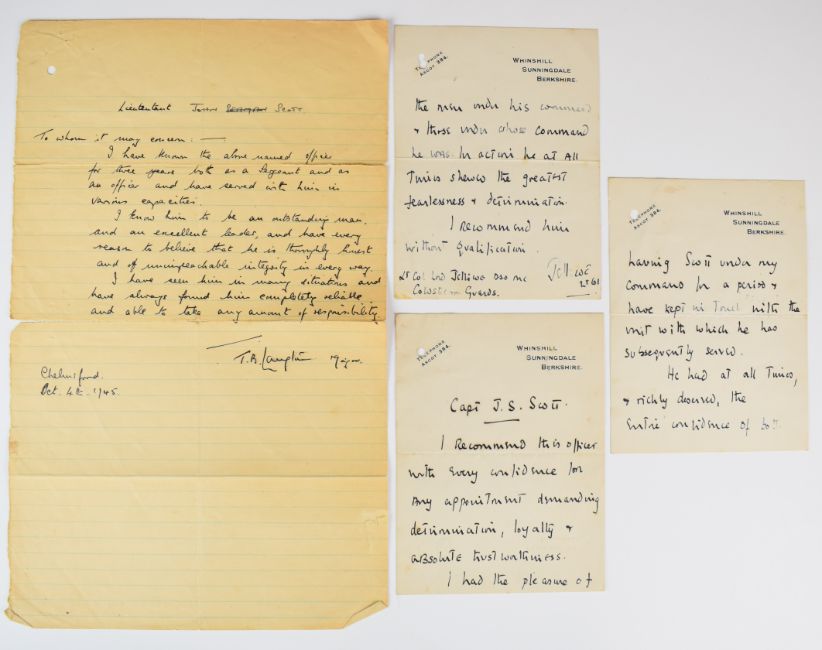 Lieutenant John Seaman Scott.
To whom it may concern: —
I have known the above named officer
for three years both as a Sergeant and as
an officer and have served with him in
various capacities.
I know him to be an outstanding man,
and an excellent leader, and have every
reason to believe that he is thoroughly honest
and of unimpeachable integrity in every way.
I have seen him in many situations and
have always found him completely reliable
and able to take any amount of responsibility.
T.B. Langton Major.
Chelmsford.
Oct. 4th. 1945.
TELEPHONE
ASCOT 384.
WHINSHILL
SUNNINGDALE
BERKSHIRE.
Capt J. S. Scott.
I recommend this officer
with every confidence for
any appointment demanding
determination, loyalty +
absolute trustworthiness.
I had the pleasure of
TELEPHONE
ASCOT 384.
WHINSHILL
SUNNINGDALE
BERKSHIRE.
having Scott under my
command for a period +
have kept in touch with the
unit with which he has
subsequently served.
He had at all times,
+ richly deserved, the
entire confidence of both
TELEPHONE
ASCOT 384.
WHINSHILL
SUNNINGDALE
BERKSHIRE.
the men under his command
+ those under whose command
he was. In action he at all
times shewed the greatest
fearlessness + determination.
I recommend him
without qualification.
Jellicoe
Lt Col
Lt Col Lord Jellicoe DSO MC
Coldstream Guards.